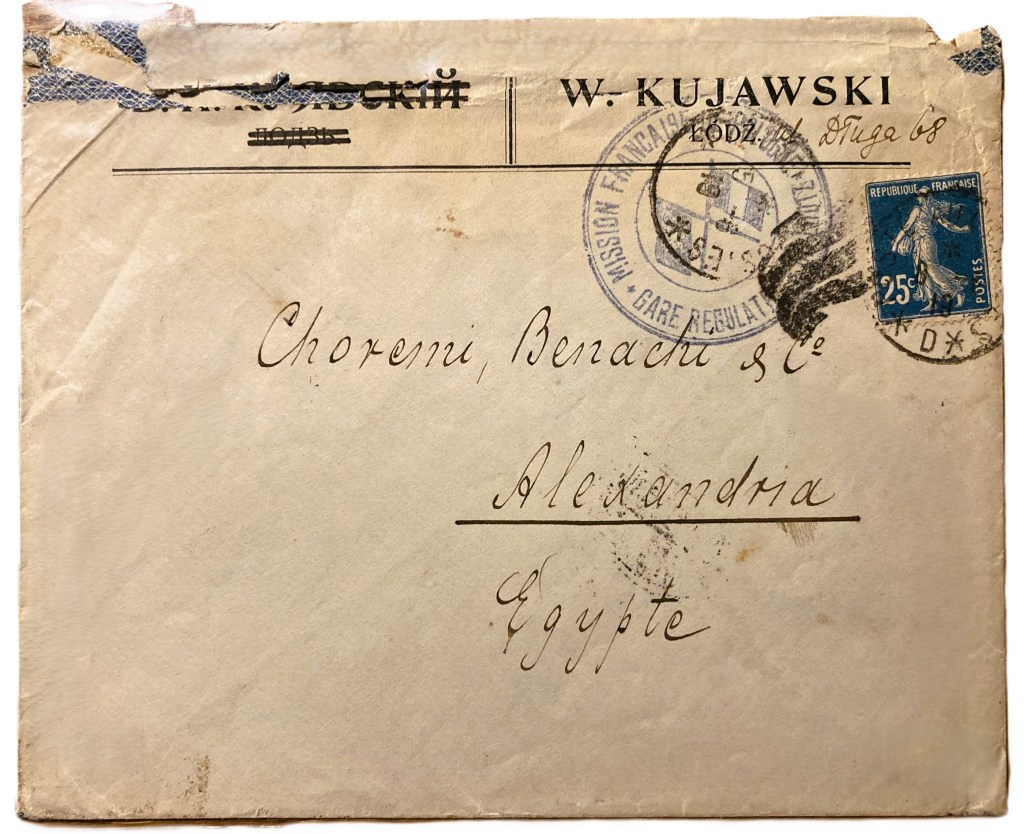 КУЯВСКІЙ
ЛОДЗЬ.
W. KUJAWSKI
ŁÓDŹ. ul. Długa 68
MISSION FRANCAISE
* GARE REGULAT
S. E S *
REPUBLIQUE FRANÇAISE
25c
POSTES
D * S
Choremi, Benachi & Cº
Alexandria
Egypte